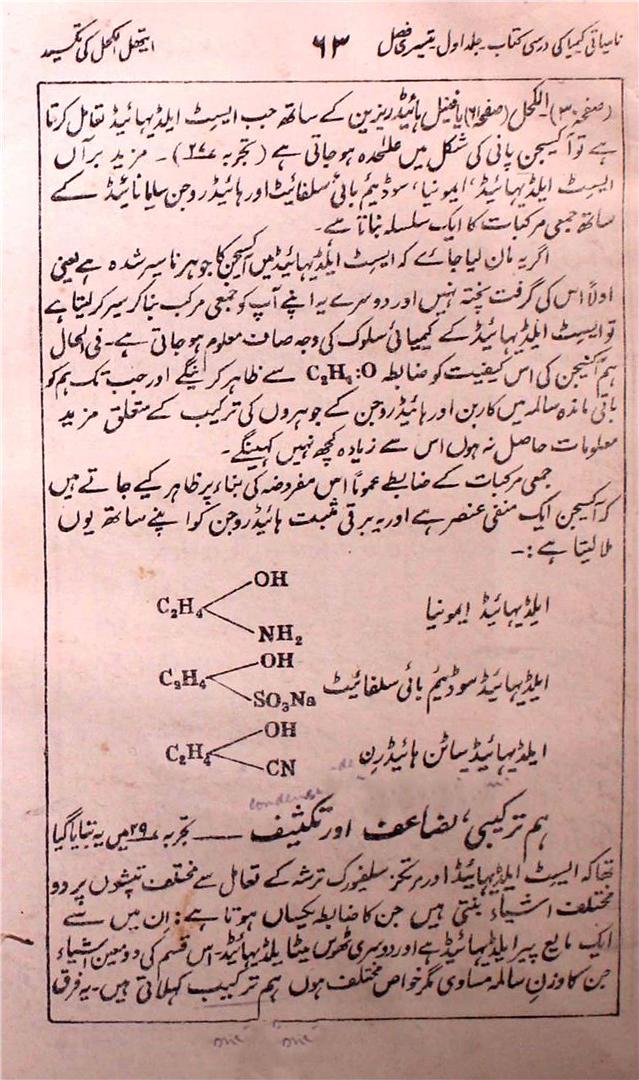 نامیاتی کیمیا کی درسی کتاب۔ جلد اول۔ تیسری فصل ۶۳ ایتھل الکحل کی تکسید
(صفحہ ۳۰)۔ الکحل (صفحہ ۶۱) یا فنیل ہائیڈریزین کے ساتھ جب ایسٹ ایلڈیہائیڈ تعامل کرتا
ہے تو آکسیجن پانی کی شکل میں علٰحدہ ہو جاتی ہے (تجربہ ۲۷)۔ مزید برآں
ایسٹ ایلڈیہائیڈ، ایمونیا، سوڈیم بائی سلفائیٹ اور ہائیڈروجن سایانائیڈ کے
ساتھ جمعی مرکبات کا ایک سلسلہ بناتا ہے۔
اگر یہ مان لیا جائے کہ ایسٹ ایلڈیہائیڈ میں آکسیجن کا جوہر ناسیر شدہ ہے یعنی
اولاً اس کی گرفت پختہ نہیں اور دوسرے یہ اپنے آپ کو جمعی مرکب بنا کر سیر کر لیتا ہے
تو ایسٹ ایلڈیہائیڈ کے کیمیائی سلوک کی وجہ صاف معلوم ہو جاتی ہے۔ فی الحال
ہم آکسیجن کی اس کیفیت کو ضابطہ C₂H₄:O سے ظاہر کرینگے اور جب تک ہم کو
باقی ماندہ سالمہ میں کاربن اور ہائیڈروجن کے جوہروں کی ترکیب کے متعلق مزید
معلومات حاصل نہ ہوں اس سے زیادہ کچھ نہیں کہینگے۔
جمعی مرکبات کے ضابطے عموماً اس مفروضہ کی بناء پر ظاہر کیے جاتے ہیں
کہ آکسیجن ایک منفی عنصر ہے اور یہ برقی مثبت ہائیڈروجن کو اپنے ساتھ یوں
ملا لیتا ہے:۔
OH
ایلڈیہائیڈ ایمونیا C₂H₄
NH₂
OH
ایلڈیہائیڈ سوڈیم بائی سلفائیٹ C₂H₄
SO₃Na
OH
ایلڈیہائیڈ سائن ہائیڈرن C₂H₄
CN
condense
ہم ترکیبی، تضاعف اور تکثیف —— تجربہ ۲۹ میں یہ بتایا گیا
تھا کہ ایسٹ ایلڈیہائیڈ اور مرتکز سلفیورک ترشہ کے تعامل سے مختلف تپشوں پر دو
مختلف اشیاء بنتی ہیں جن کا ضابطہ یکساں ہوتا ہے: اِن میں سے
ایک مایع پیرایلڈیہائیڈ ہے اور دوسری ٹھوس میٹایلڈیہائیڈ۔ اس قسم کی دو معین اشیاء
جن کا وزنِ سالمہ مساوی مگر خواص مختلف ہوں ہم ترکیب کہلاتی ہیں۔ یہ فرق